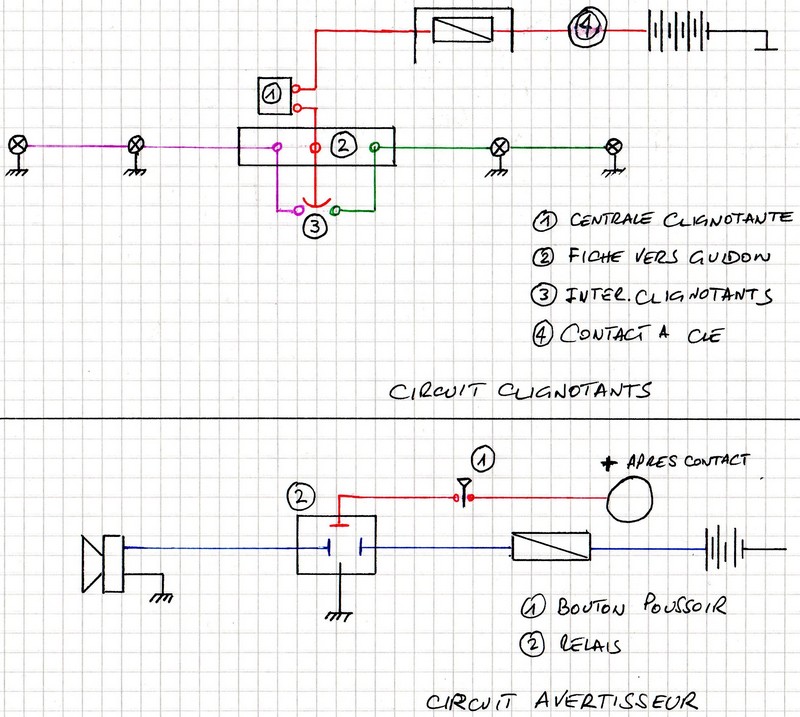 4
1
2
3
1 CENTRALE CLIGNOTANTE
2 FICHE VERS GUIDON
3 INTER. CLIGNOTANTS
4 CONTACT A CLE
CIRCUIT CLIGNOTANTS
1
+ APRES CONTACT
2
1 BOUTON POUSSOIR
2 RELAIS
CIRCUIT AVERTISSEUR